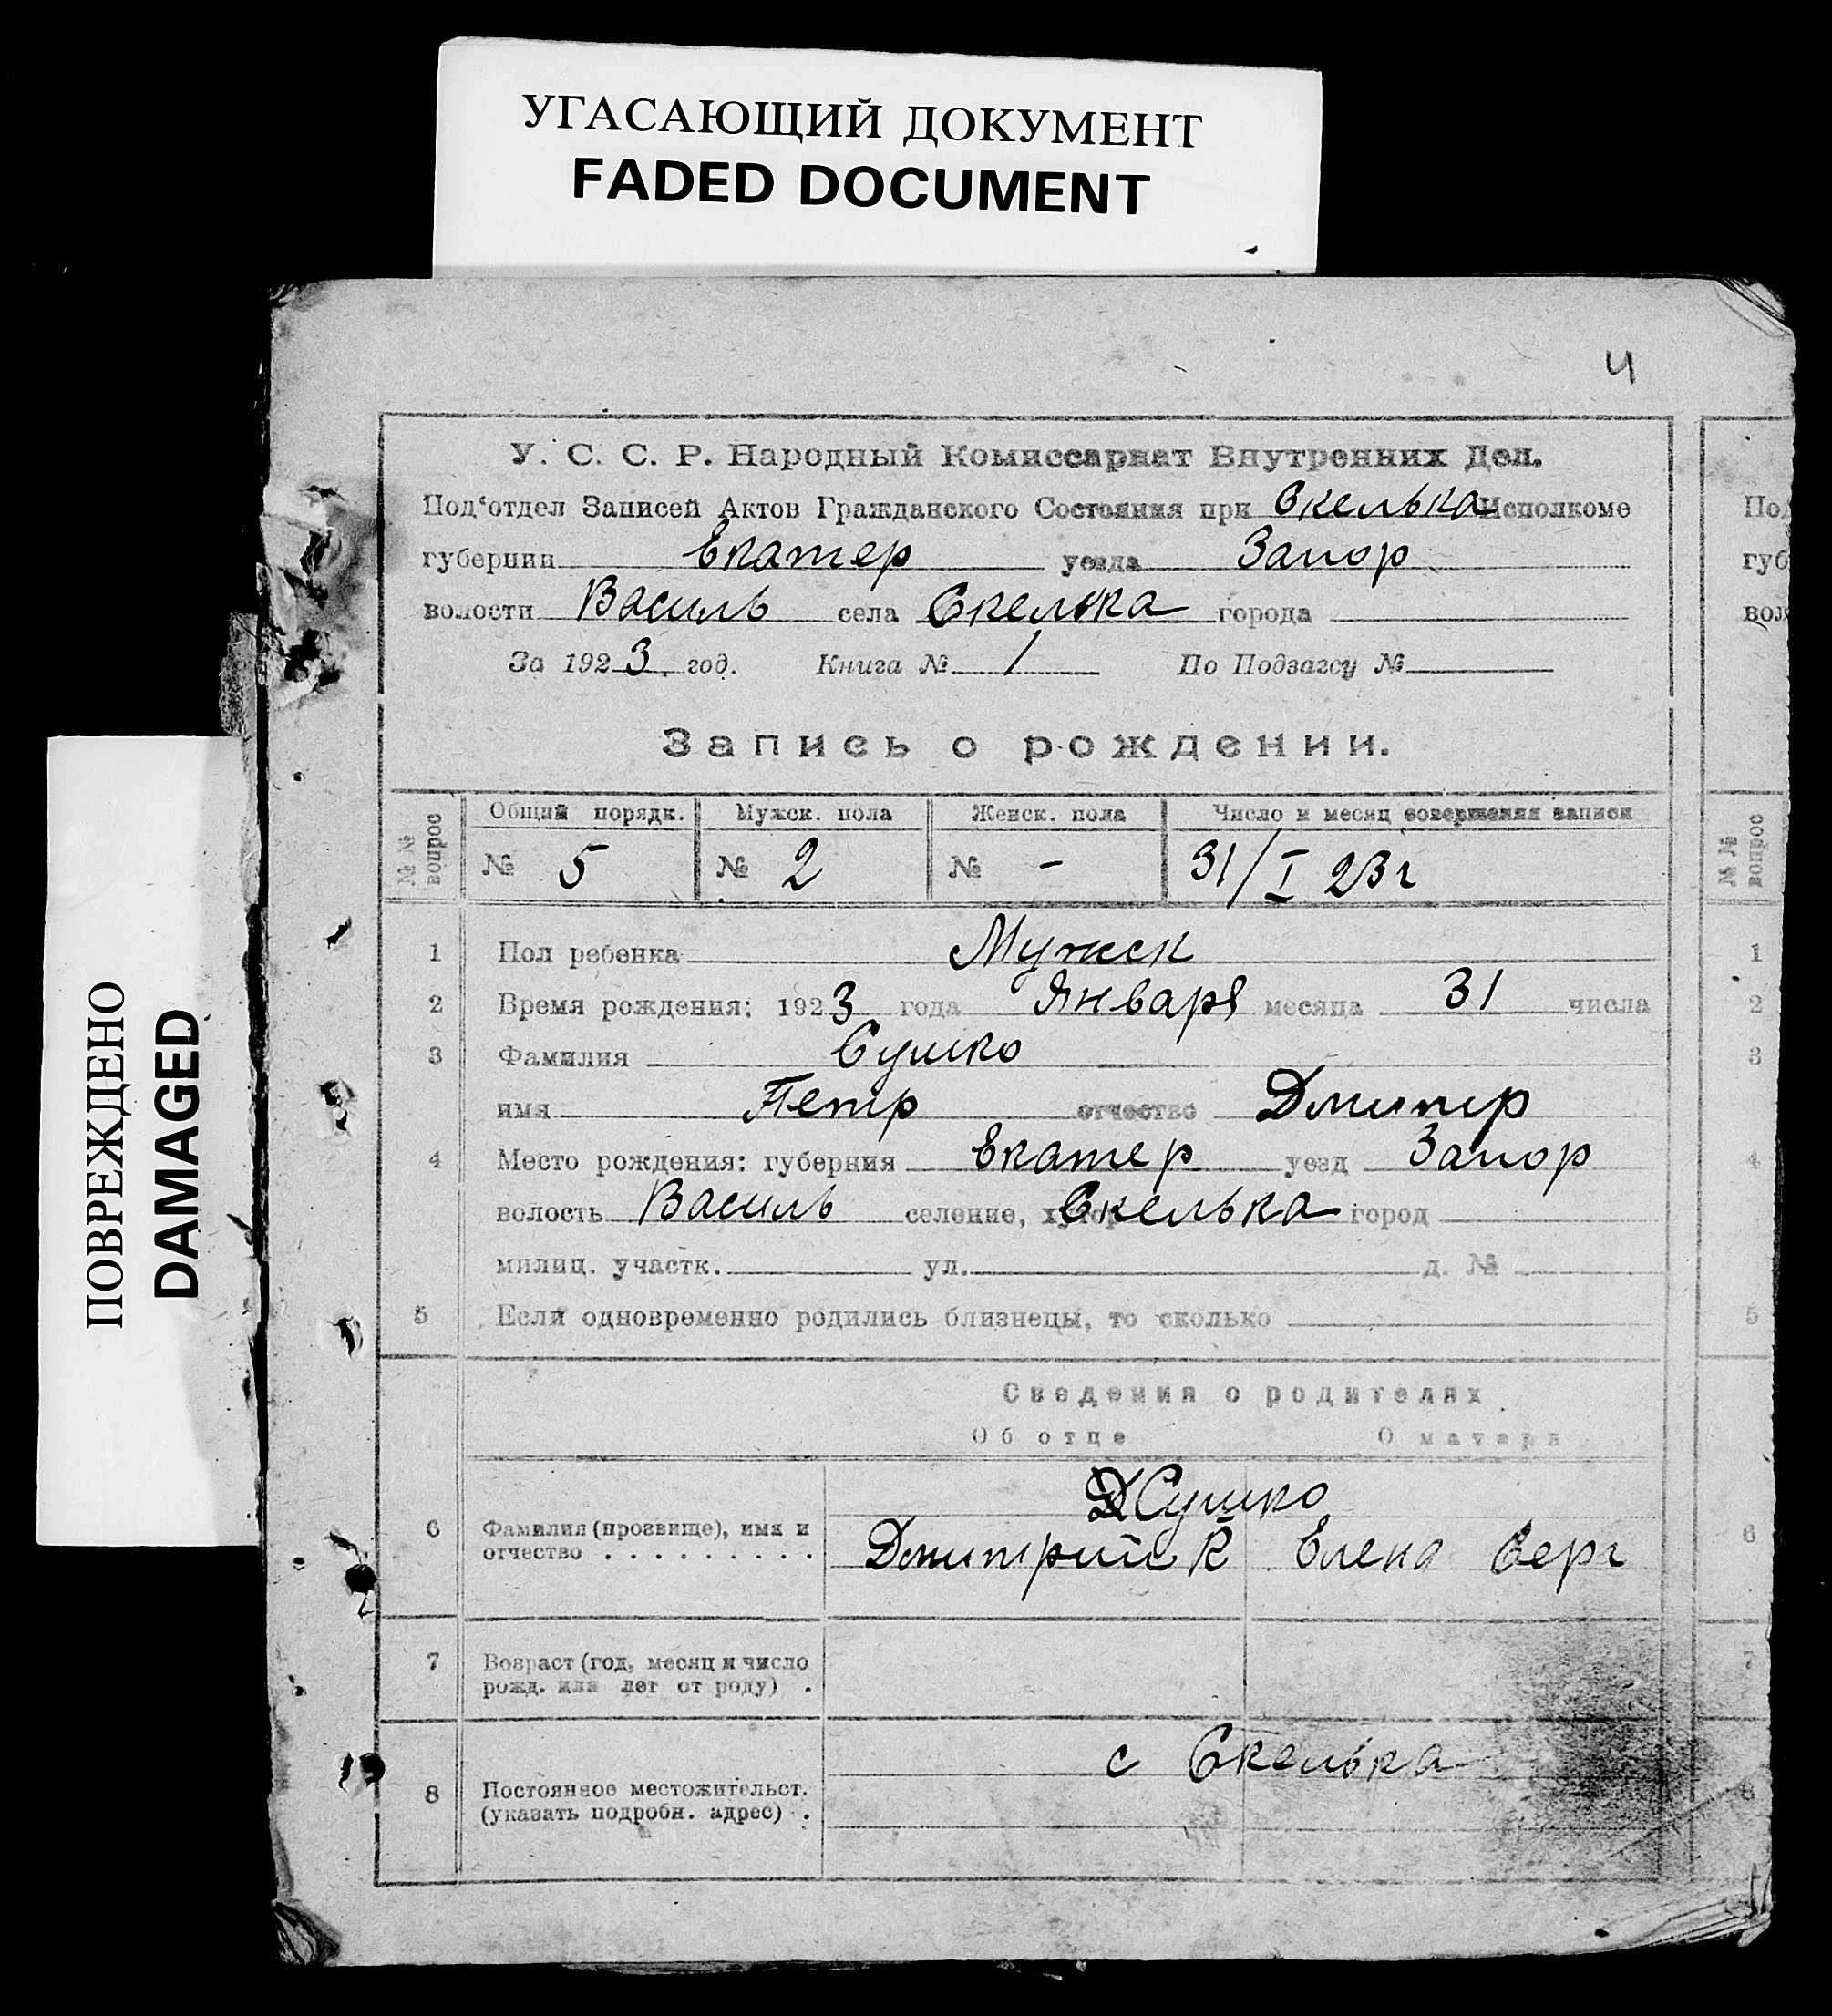 УГАСАЮЩИЙ ДОКУМЕНТ
FADED DOCUMENT
ПОВРЕЖДЕНО
DAMAGED
4
У. С. С. Р. Народный Комиссариат Внутренних Дел.
Под'отдел Записей Актов Гражданского Состояния при Скелька Исполкоме
губернии Екатер уезда Запор
волости Василь села Скелька города
За 1923 год. Книга № 1 По Подзагсу №
Запись о рождении.
№ № вопрос Общий порядк. Мужск. пола Женск. пола Число и месяц совершения записи
№ 5 № 2 № - 31/I 23 г
1 Пол ребенка Мужск
2 Время рождения: 1923 года Января месяца 31 числа
3 Фамилия Сушко
имя Петр отчество Дмитр
4 Место рождения: губерния Екатер уезд Запор
волость Василь селение, хутор Скелька город
милиц. участк. ул. д. №
5 Если одновременно родились близнецы, то сколько
Сведения о родителях
Об отце О матери
Сушко
6 Фамилия (прозвище), имя и
отчество . . . . . . . . . Дмитрий К Елена Серг
7 Возраст (год, месяц и число
рожд. или лет от роду) .
с Скелька
8 Постоянное местожительст.
(указать подробн. адрес) .
По
губ
вол
№ № вопрос
1
2
3
4
5
6
7
8